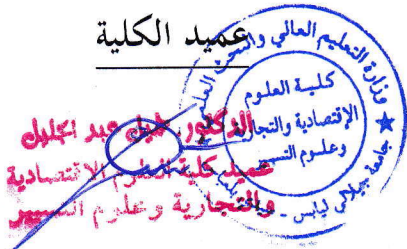 عميد الكلية
وزارة التعليم العالي والبحث العلمي
كلية العلوم
الإقتصادية والتجارية
وعلوم التسيير
جامعة جيلالي ليابس
الدكتور. عبد الجليل
عميد كلية العلوم الاقتصادية
والتجارية وعلوم التسيير